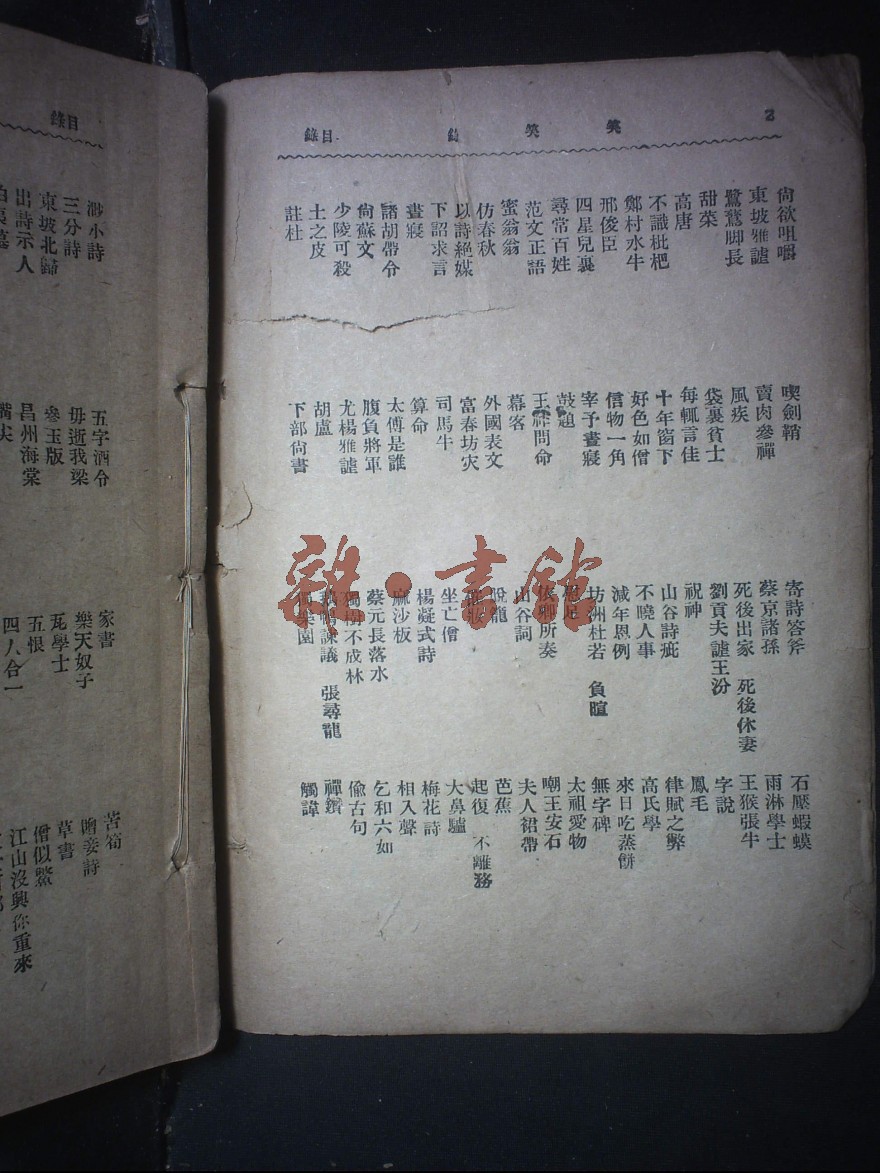 2
笑笑錄
目錄
尙欲咀嚼
東坡雅謔
鷺鶿脚長
甜菜
高唐
不識枇杷
鄭村水牛
邢俊臣
四星兒裏
尋常百姓
范文正語
蜜翁翁
仿春秋
以詩絕媒
下詔求言
晝寢
諸胡帶令
尙蘇文
少陵可殺
土之皮
註杜
喫劍鞘
賣肉參禪
風疾
袋裏貧士
每輒言佳
十年窗下
好色如僧
信物一角
宰予晝寢
鼓題
問命
幕客
外國表文
富春坊灾
司馬牛
算命
太傅是誰
腹負將軍
尤楊雅謔
胡盧
下部尙書
寄詩答斧
蔡京諸孫
死後出家 死後休妻
劉貢夫謔王汾
祝神
山谷詩疵
不曉人事
減年恩例
坊洲杜若 負暄
所奏
山谷詞
脫龍
坐亡僧
楊凝式詩
麻沙板
蔡元長落水
獨樹不成林
鵝鴨諫議 張尋龍
園
石壓蝦蟆
雨淋學士
王猴張牛
字說
鳳毛
律賦之弊
高氏學
來日吃蒸餅
無字碑
太祖愛物
嘲王安石
夫人裙帶
芭蕉
起復 不離務
大鼻驢
梅花詩
相入聲
乞和六如
偸古句
禪鑽
觸諱
目錄
渺小詩
三分詩
東坡北歸
出詩示人
五字酒令
毋逝我梁
參玉版
昌州海棠
嘴尖
家書
樂天奴子
瓦學士
五恨
四八合一
苦筍
嘲妾詩
草書
僧似鱉
江山沒興你重來
雜·書館